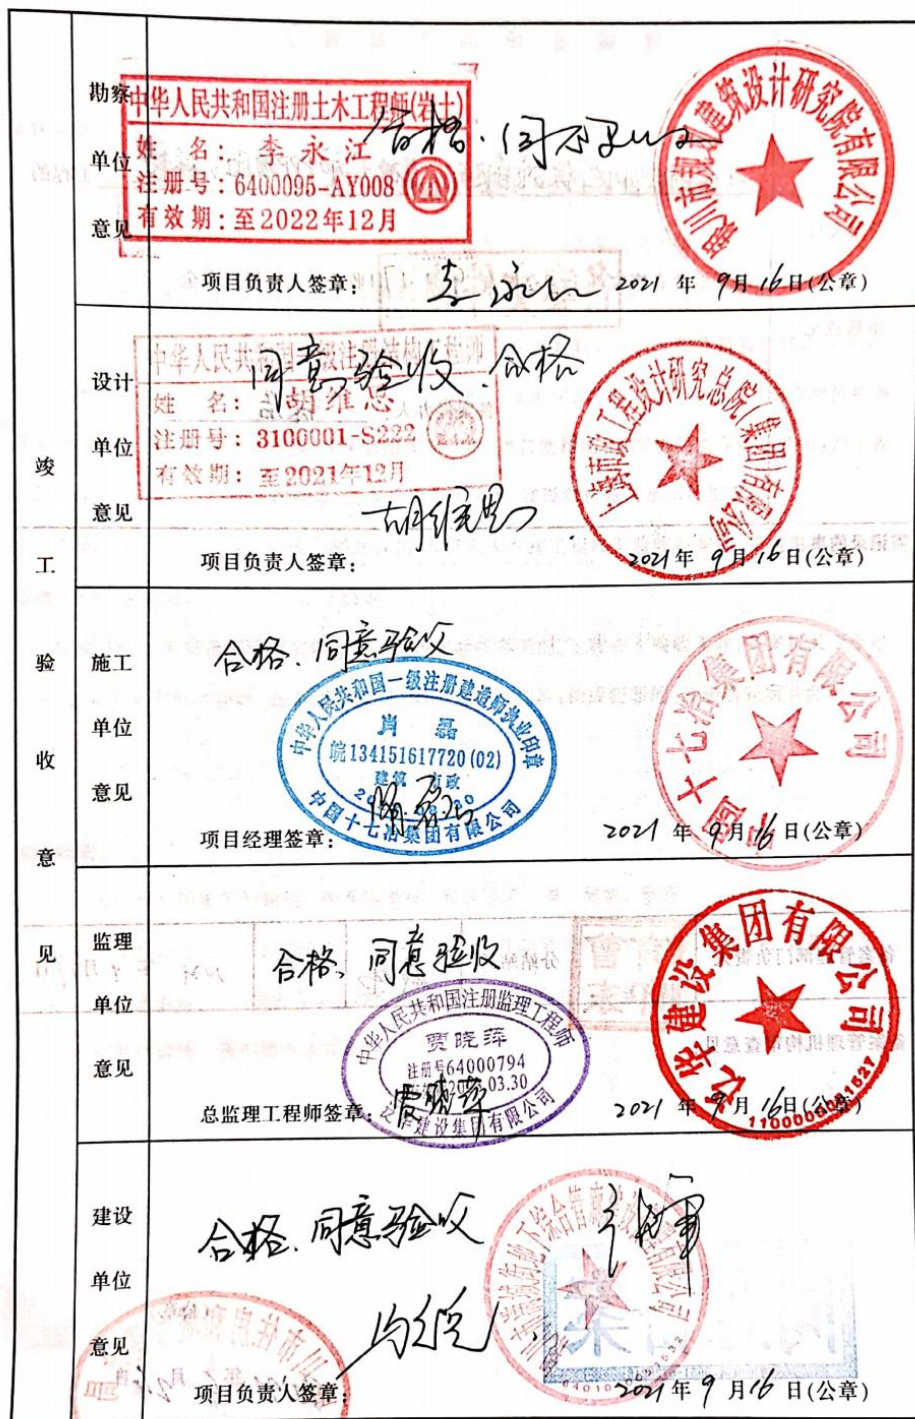 竣工验收意见
勘察单位意见
中华人民共和国注册土木工程师(岩土)
姓 名：李永江
注册号：6400095-AY008
有效期：至2022年12月
合格.同意验收
银川市规划建筑设计研究院有限公司
项目负责人签章： 李永江 2021年9月16日(公章)
设计单位意见
姓 名：胡维思
注册号：3100001-S222
有效期：至2021年12月
同意验收.合格
上海市政工程设计研究总院(集团)有限公司
胡维思
项目负责人签章： 2021年9月16日(公章)
施工单位意见
合格.同意验收
中华人民共和国一级注册建造师执业印章
肖磊
皖134151617720(02)
建筑 市政
中国十七冶集团有限公司
中国十七冶集团有限公司
项目经理签章： 2021年9月16日(公章)
监理单位意见
合格、同意验收
中华人民共和国注册监理工程师
贾晓萍
注册号64000794
03.30
建设集团有限公司
华建设集团有限公司
1100000081527
总监理工程师签章：贾晓萍 2021年9月16日(公章)
建设单位意见
合格.同意验收
地下综合管廊建设
有限公司
项目负责人签章： 2021年9月16日(公章)